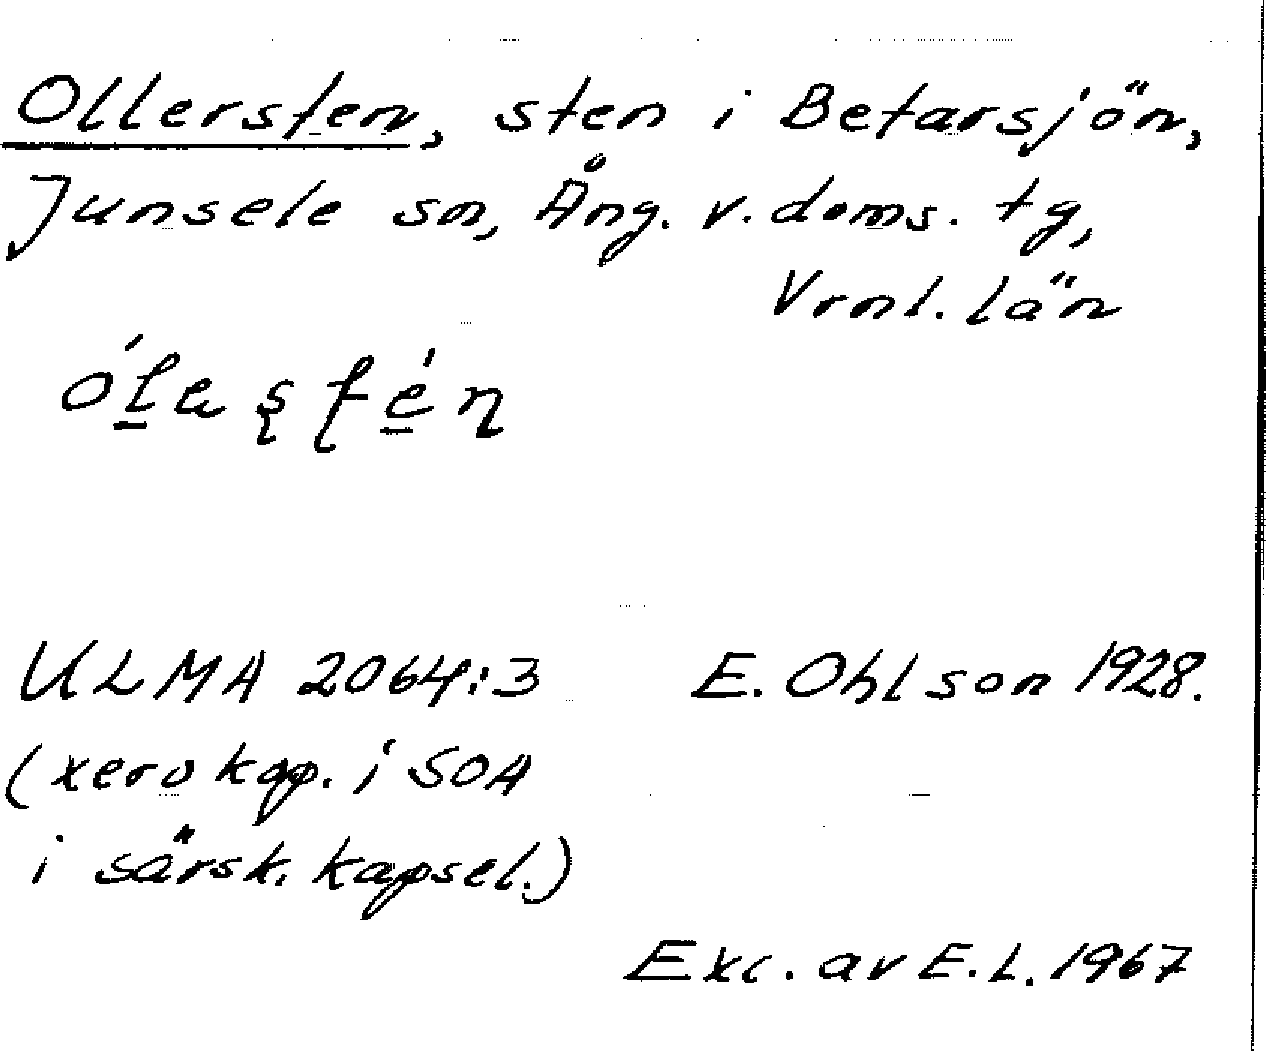 Ollersten, sten i Betarsjön,
Junsele sn, Ång. v. doms. tg,
Vrnl. län
ULMA 2064:3 E. Ohlson 1928.
(xerokop. i SOA
i särsk. kapsel.)
Exc. av E.L. 1967